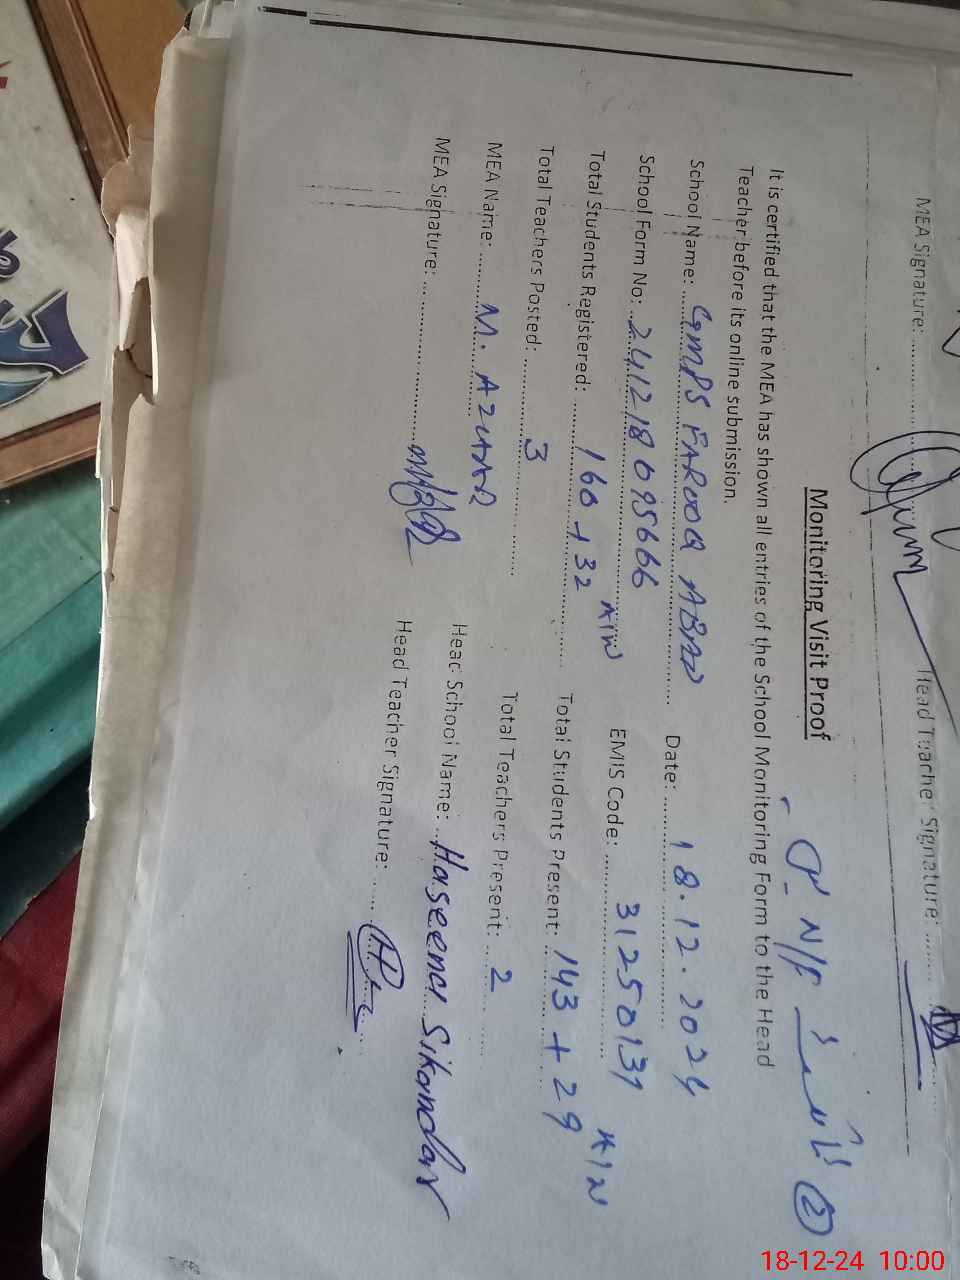 MEA Signature: ........ Head Teacher Signature: ........
Monitoring Visit Proof
It is certified that the MEA has shown all entries of the School Monitoring Form to the Head
Teacher before its online submission.
School Name: GMPS FAROOQ ABAD Date: 18.12.2024
School Form No: 241218095666 EMIS Code: 31250131
Total Students Registered: 160 + 32 KIN Total Students Present: 143 + 29 KIN
Total Teachers Posted: 3 Total Teachers Present: 2
MEA Name: M. AZHAR Head School Name: Haseena Sikandar
MEA Signature: ........ Head Teacher Signature: ........
18-12-24 10:00